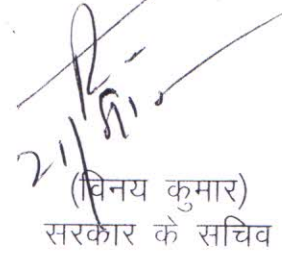 (विनय कुमार)
सरकार के सचिव